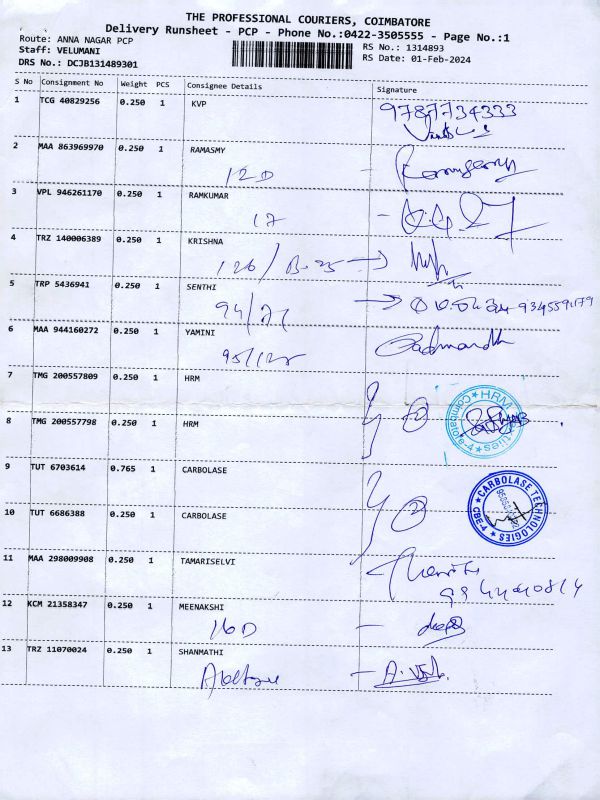 THE PROFESSIONAL COURIERS, COIMBATORE
Delivery Runsheet - PCP - Phone No.:0422-3505555 - Page No.:1
Route: ANNA NAGAR PCP
RS No.: 1314893
Staff: VELUMANI
RS Date: 01-Feb-2024
DRS No.: DCJB131489301
S No Consignment No Weight PCS Consignee Details Signature
1 TCG 40829256 0.250 1 KVP
9787734333
2 MAA 863969970 0.250 1 RAMASMY
12D -
3 VPL 946261170 0.250 1 RAMKUMAR
17 -
4 TRZ 140006389 0.250 1 KRISHNA
126/B-25 →
5 TRP 5436941 0.250 1 SENTHI
94/77 →
6 MAA 944160272 0.250 1 YAMINI
95/128
7 TMG 200557809 0.250 1 HRM
8 TMG 200557798 0.250 1 HRM
2
HRM
Coimbatore-4
9 TUT 6703614 0.765 1 CARBOLASE
10 TUT 6686388 0.250 1 CARBOLASE
2
CARBOLASE TECHNOLOGIES
CBE-4
11 MAA 298009908 0.250 1 TAMARISELVI
12 KCM 21358347 0.250 1 MEENAKSHI
16D -
13 TRZ 11070024 0.250 1 SHANMATHI
-